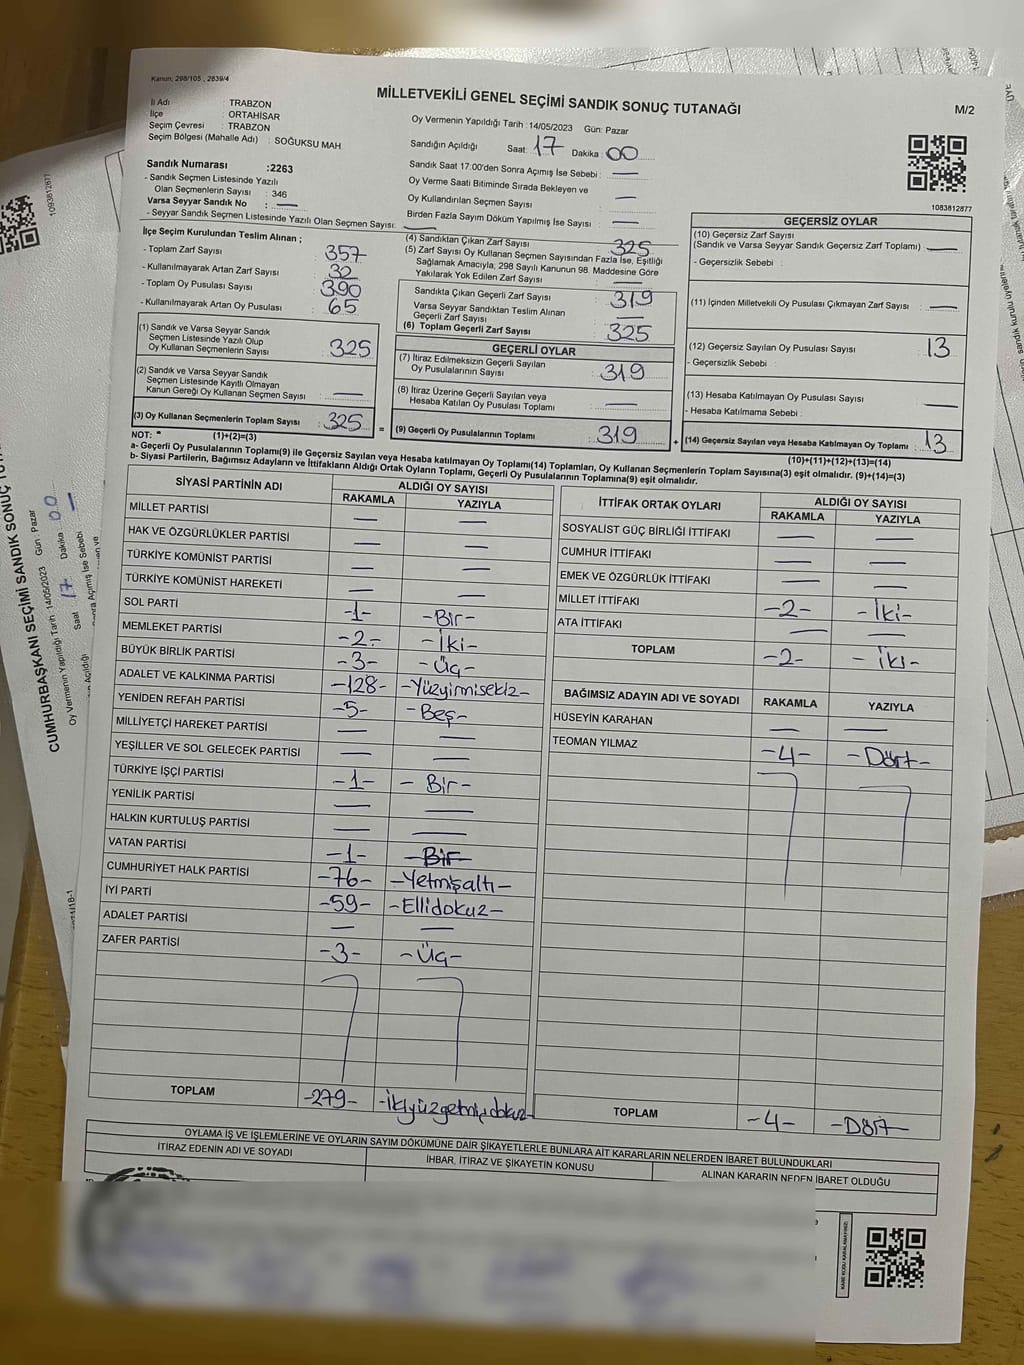 Kanun: 298/105 , 2839/4
MİLLETVEKİLİ GENEL SEÇİMİ SANDIK SONUÇ TUTANAĞI
M/2
İl Adı : TRABZON
İlçe : ORTAHİSAR
Seçim Çevresi : TRABZON
Seçim Bölgesi (Mahalle Adı) : SOĞUKSU MAH.
Sandık Numarası :2263
- Sandık Seçmen Listesinde Yazılı
Olan Seçmenlerin Sayısı : 346
Varsa Seyyar Sandık No : —
- Seyyar Sandık Seçmen Listesinde Yazılı Olan Seçmen Sayısı: —
Oy Vermenin Yapıldığı Tarih :14/05/2023 Gün: Pazar
Sandığın Açıldığı Saat: 17 Dakika : 00
Sandık Saat 17:00'den Sonra Açımış İse Sebebi : —
Oy Verme Saati Bitiminde Sırada Bekleyen ve
Oy Kullandırılan Seçmen Sayısı : —
Birden Fazla Sayım Döküm Yapılmış İse Sayısı : —
1083812877
İlçe Seçim Kurulundan Teslim Alınan ;
- Toplam Zarf Sayısı : 357
- Kullanılmayarak Artan Zarf Sayısı : 32
- Toplam Oy Pusulası Sayısı : 390
- Kullanılmayarak Artan Oy Pusulası : 65
(1) Sandık ve Varsa Seyyar Sandık
Seçmen Listesinde Yazılı Olup
Oy Kullanan Seçmenlerin Sayısı : 325
(2) Sandık ve Varsa Seyyar Sandık
Seçmen Listesinde Kayıtlı Olmayan
Kanun Gereği Oy Kullanan Seçmen Sayısı : —
(3) Oy Kullanan Seçmenlerin Toplam Sayısı : 325 =
(1)+(2)=(3)
(4) Sandıktan Çıkan Zarf Sayısı : 325
(5) Zarf Sayısı Oy Kullanan Seçmen Sayısından Fazla İse, Eşitliği
Sağlamak Amacıyla, 298 Sayılı Kanunun 98. Maddesine Göre
Yakılarak Yok Edilen Zarf Sayısı : —
Sandıkta Çıkan Geçerli Zarf Sayısı : 319
Varsa Seyyar Sandıktan Teslim Alınan
Geçerli Zarf Sayısı : —
(6) Toplam Geçerli Zarf Sayısı : 325
GEÇERLİ OYLAR
(7) İtiraz Edilmeksizin Geçerli Sayılan
Oy Pusulalarının Sayısı : 319
(8) İtiraz Üzerine Geçerli Sayılan veya
Hesaba Katılan Oy Pusulası Toplamı : —
(9) Geçerli Oy Pusulalarının Toplamı : 319 +
GEÇERSİZ OYLAR
(10) Geçersiz Zarf Sayısı
(Sandık ve Varsa Seyyar Sandık Geçersiz Zarf Toplamı) : —
- Geçersizlik Sebebi :
(11) İçinden Milletvekili Oy Pusulası Çıkmayan Zarf Sayısı : —
(12) Geçersiz Sayılan Oy Pusulası Sayısı : 13
- Geçersizlik Sebebi :
(13) Hesaba Katılmayan Oy Pusulası Sayısı : —
- Hesaba Katılmama Sebebi :
(14) Geçersiz Sayılan veya Hesaba Katılmayan Oy Toplamı : 13
(10)+(11)+(12)+(13)=(14)
NOT:
a- Geçerli Oy Pusulalarının Toplamı(9) ile Geçersiz Sayılan veya Hesaba katılmayan Oy Toplamı(14) Toplamları, Oy Kullanan Seçmenlerin Toplam Sayısına(3) eşit olmalıdır. (9)+(14)=(3)
b- Siyasi Partilerin, Bağımsız Adayların ve İttifakların Aldığı Ortak Oyların Toplamı, Geçerli Oy Pusulalarının Toplamına(9) eşit olmalıdır.
SİYASİ PARTİNİN ADI ALDIĞI OY SAYISI
RAKAMLA YAZIYLA
MİLLET PARTİSİ — —
HAK VE ÖZGÜRLÜKLER PARTİSİ — —
TÜRKİYE KOMÜNİST PARTİSİ — —
TÜRKİYE KOMÜNİST HAREKETİ — —
SOL PARTİ -1- -Bir-
MEMLEKET PARTİSİ -2- -İki-
BÜYÜK BİRLİK PARTİSİ -3- -Üç-
ADALET VE KALKINMA PARTİSİ -128- -Yüzyirmisekiz-
YENİDEN REFAH PARTİSİ -5- -Beş-
MİLLİYETÇİ HAREKET PARTİSİ — —
YEŞİLLER VE SOL GELECEK PARTİSİ — —
TÜRKİYE İŞÇİ PARTİSİ -1- -Bir-
YENİLİK PARTİSİ — —
HALKIN KURTULUŞ PARTİSİ — —
VATAN PARTİSİ -1- -Bir-
CUMHURİYET HALK PARTİSİ -76- -Yetmişaltı-
İYİ PARTİ -59- -Ellidokuz-
ADALET PARTİSİ — —
ZAFER PARTİSİ -3- -Üç-
TOPLAM -279- -İkiyüzyetmişdokuz-
İTTİFAK ORTAK OYLARI ALDIĞI OY SAYISI
RAKAMLA YAZIYLA
SOSYALİST GÜÇ BİRLİĞİ İTTİFAKI — —
CUMHUR İTTİFAKI — —
EMEK VE ÖZGÜRLÜK İTTİFAKI — —
MİLLET İTTİFAKI -2- -İki-
ATA İTTİFAKI — —
TOPLAM -2- -İki-
BAĞIMSIZ ADAYIN ADI VE SOYADI RAKAMLA YAZIYLA
HÜSEYİN KARAHAN — —
TEOMAN YILMAZ -4- -Dört-
TOPLAM -4- -Dört-
OYLAMA İŞ VE İŞLEMLERİNE VE OYLARIN SAYIM DÖKÜMÜNE DAİR ŞİKAYETLERLE BUNLARA AİT KARARLARIN NELERDEN İBARET BULUNDUKLARI
İTİRAZ EDENİN ADI VE SOYADI İHBAR, İTİRAZ VE ŞİKAYETİN KONUSU ALINAN KARARIN NEDEN İBARET OLDUĞU
KARE KODU KARALAMAYINIZ!
1093812877
CUMHURBAŞKANI SEÇİMİ SANDIK SONUÇ
Oy Vermenin Yapıldığı Tarih 14/05/2023 Gün: Pazar
Saat : 17 Dakika : 00